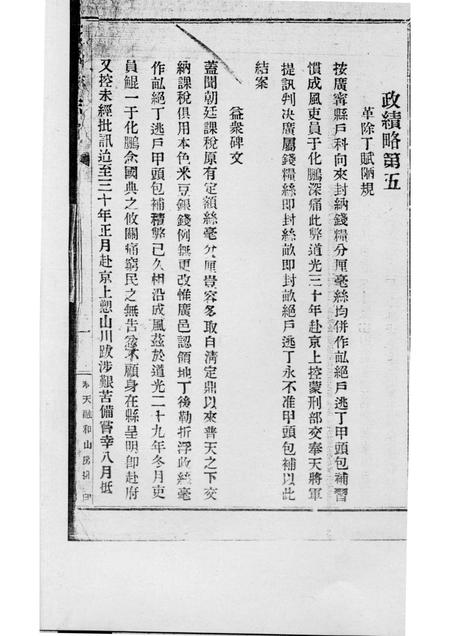 政績略第五
革除丁賦陋規
按廣寧縣戶科向來封納錢糧分厘毫絲均併作畝絕戶逃丁甲頭包補習
慣成風吏員于化鵬深痛此弊道光三十年赴京上控蒙刑部交奉天將軍
提訊判决廣屬錢糧絲即封絲畝即封畝絕戶逃丁永不准甲頭包補以此
結案
益衆碑文
蓋聞朝廷課稅原有定額絲毫分厘豈容多取自淸定鼎以來普天之下交
納課稅俱用本色米豆銀錢例無更改惟廣邑認領地丁後勒折浮政絲毫
作畝絕丁逃戶甲頭包補積弊已久相沿成風茲於道光二十九年冬月吏
員鯤一于化鵬念國典之攸關痛窮民之無吿 不顧身在縣呈明卽赴府
又控未經批訊迨至三十年正月赴京上愬山川跋涉艱苦備嘗幸八月抵
奉天融和山房 印